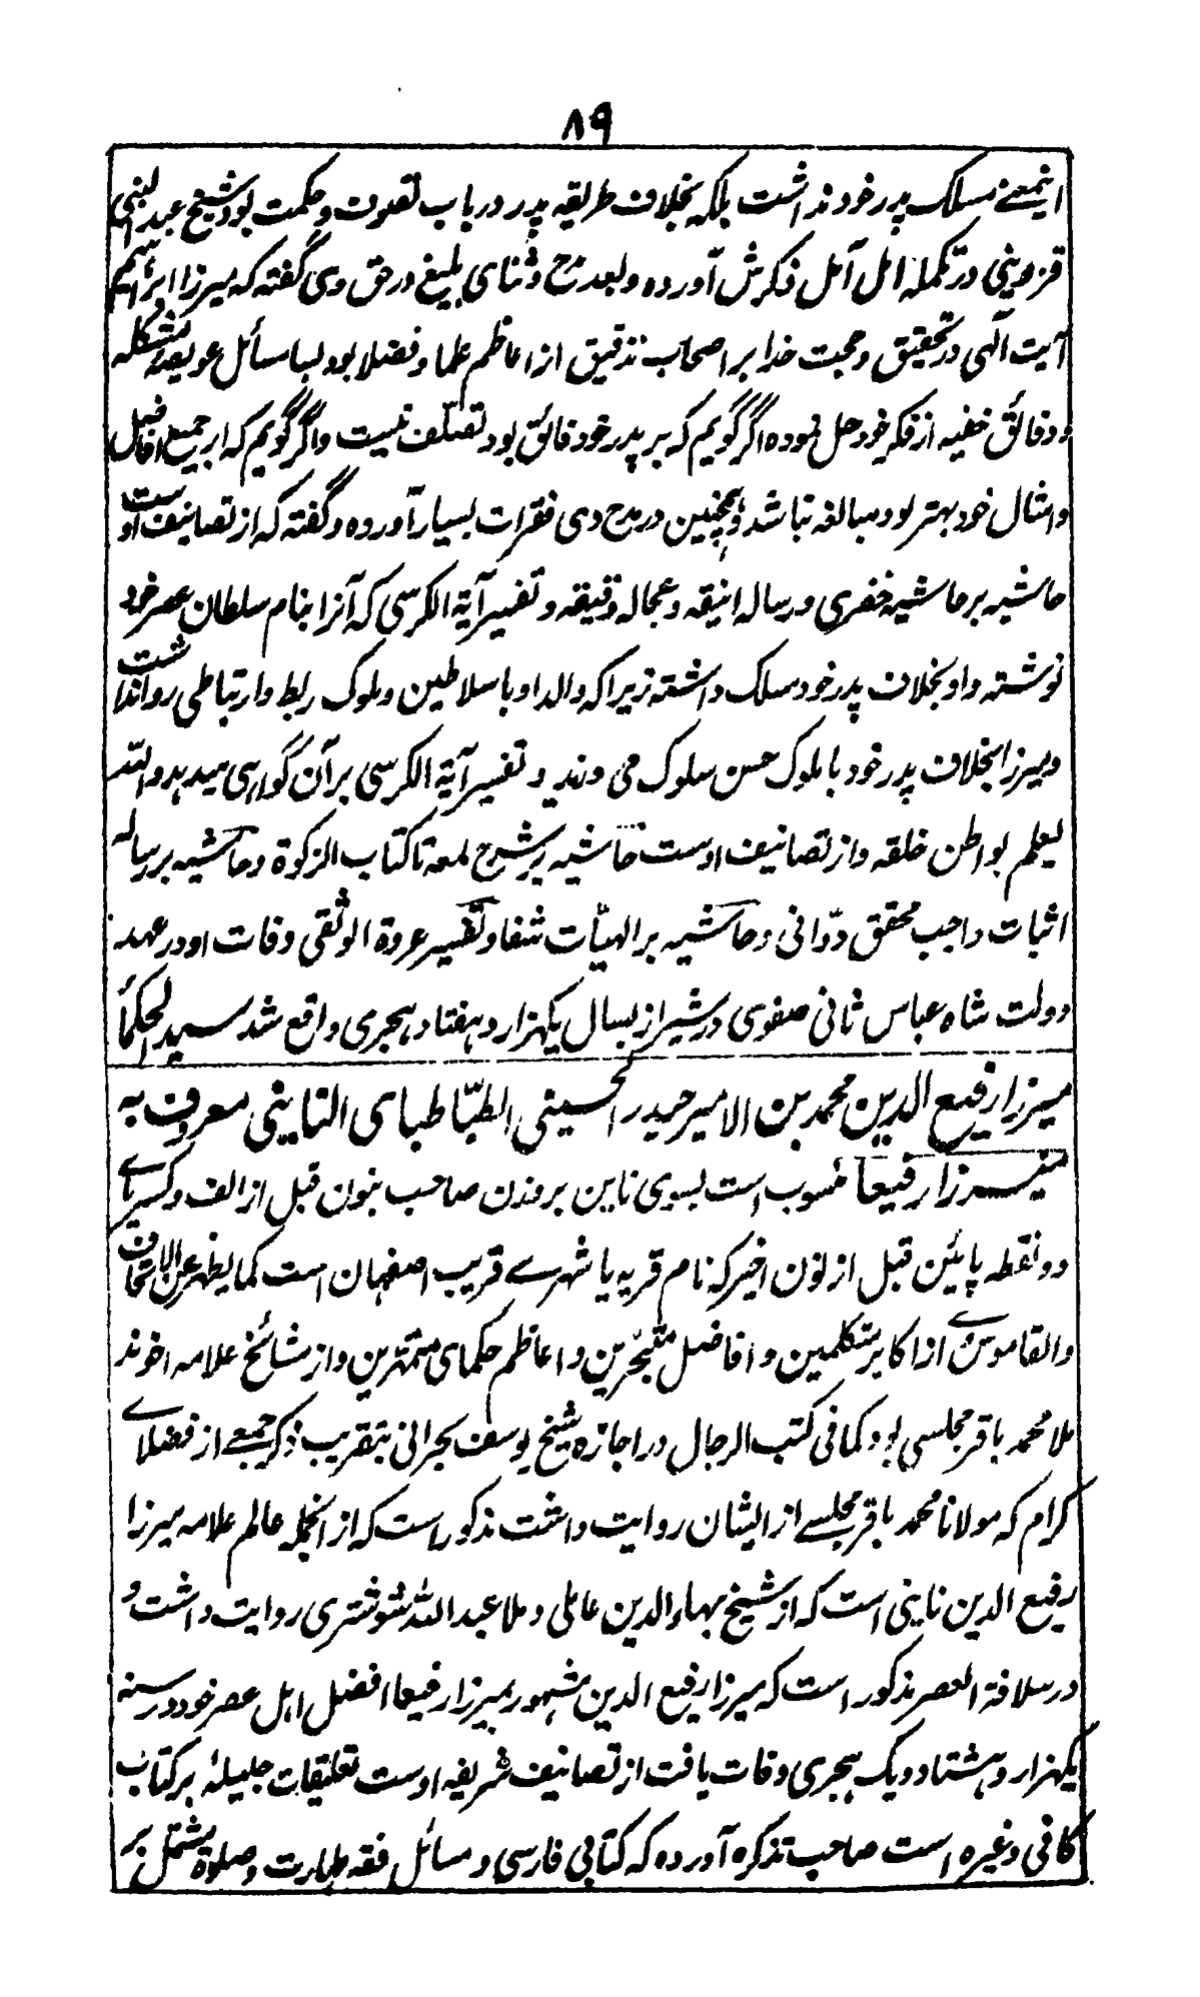 ۸۹
اینمعنے مسلک پدر خود نداشت بلکہ بخلاف طریقہ پدر در باب تصوف و حکمت بود شیخ عبد النبی
قزوینی در تکملہ امل آمل ذکرش آورده و بعد مدح و ثنای بلیغ در حق وی گفته کہ میرزا ابراهیم
آیت الٓهی در تحقیق و حجت خدا بر اصحاب تدقیق از اعاظم علما و فضلا بود بسا مسائل عویصہ مشکلہ
و دقائق خفیہ از فکر خود حل نموده اگر گویم کہ بر پدر خود فائق بود تصلف نیست واگر گویم کہ از جمیع افاضل
و امثال خود بهتر بود مبالغہ نباشد و همچنین در مدح وی فقرات بسیار آورده و گفته کہ از تصانیف اوست
حاشیہ بر حاشیہ خفری و رسالہ انیقہ و عجالہ دقیقہ و تفسیر آیة الکرسی کہ آنرا بنام سلطان عصر خود
نوشتہ و او بخلاف پدر خود مسلک داشتہ زیرا کہ والد او با سلاطین و ملوک ربط و ارتباطی روا نداشت
و میرزا بخلاف پدر خود با ملوک حسن سلوک می و تفسیر آیة الکرسی بر آن گواهی میدهد واللّه
یعلم بواطن خلقه و از تصانیف اوست حاشیہ بر شرح لمعہ تا کتاب الزکوة و حاشیہ بر رسالہ
اثبات واجب محقق دوّانی و حاشیہ بر الهیّات شفا و تفسیر عروة الوثقی وفات او در عهد
دولت شاه عباس ثانی صفوی در شیراز بسال یکهزار و هفتاد هجری واقع شد سید الحکمأ
میرزا رفیع الدین محمد بن الامیر حیدر الحسینی الطبّاطبای النائینی معروف بہ
میرزا رفیعا منسوب است بسوی نائین بر وزن صاحب بنون قبل از الف و کسر یاے
دو نقطہ پائین قبل از نون اخیر کہ نام قریہ یا شهرے قریب اصفهان است کما یظهر عن الاتحاف
والقاموس وے از اکابر متکلمین و افاضل متبحّرین و اعاظم حکمای متمهّرین و از مشائخ علامہ اخوند
ملا محمد باقر مجلسی بود کما فی کتب الرجال در اجازه شیخ یوسف بحرانی بتقریب ذکر جمعے از فضلاے
کرام کہ مولانا محمد باقر مجلسے از ایشان روایت داشت مذکور است کہ از انجملہ عالم علامہ میرزا
رفیع الدین نائینی است کہ از شیخ بهاء الدین عاملی و ملا عبد اللّه شوشتری روایت داشت و
در سلافة العصر مذکور است کہ میرزا رفیع الدین مشهور بمیرزا رفیعا افضل اہل عصر خود در سنہ
یکهزار و هشتاد و یک هجری وفات یافت از تصانیف شریفہ اوست تعلیقات جلیلہٴ بر کتاب
کافی و غیره است صاحب تذکره آورده کہ کتابی فارسی و مسائل فقہ طهارت و صلوة مشتمل بر